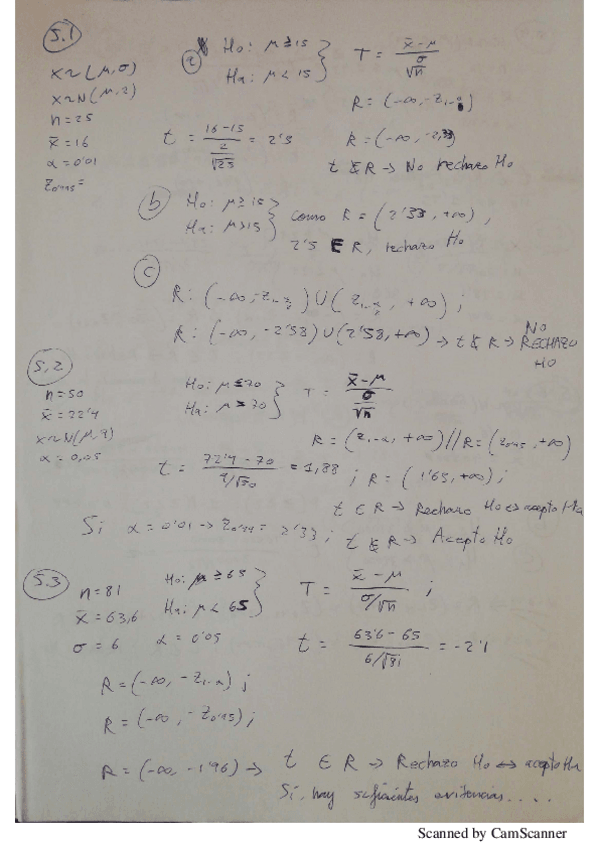 5.1
X~(μ,σ)
X~N(μ,2)
n=25
x̄=16
α=0'01
a) H₀: μ≥15
Hₐ: μ<15
T = (x̄-μ)/(σ/√n)
R=(-∞,-Z₁₋α)
t = (16-15)/(2/√25) = 2'5
R=(-∞,-2,33)
t ∉ R → No rechazo H₀
b) H₀: μ≥15
Hₐ: μ>15
como R = (2'33, +∞),
2'5 ∈ R, rechazo H₀
c)
R: (-∞,-Z₁₋α/2) ∪ (Z₁₋α/2, +∞);
R: (-∞,-2'58) ∪ (2'58,+∞) → t ∉ R → NO RECHAZO H0
5,2
n=50
x̄=72'4
X~N(μ,9)
α=0,05
H₀: μ≤70
Hₐ: μ>70
T = (x̄-μ)/(σ/√n)
R=(Z₁₋α, +∞)//R=(Z₀'₉₅, +∞)
t = (72'4-70)/(9/√50) = 1,88; R=(1'65,+∞);
t ∈ R → Rechazo H₀ ↔ acepto Hₐ
Si α=0'01 → Z₀'₉₉ = 2'33; t ∉ R → Acepto H₀
5.3
n=81
x̄=63,6
σ=6
α=0'05
H₀: μ≥65
Hₐ: μ<65
T = (x̄-μ)/(σ/√n);
t = (63'6-65)/(6/√81) = -2'1
R=(-∞,-Z₁₋α);
R=(-∞,-Z₀'₉₅);
R=(-∞,-1'96) → t ∈ R → Rechazo H₀ ↔ acepto Hₐ
Si, hay suficientes evidencias....
Scanned by CamScanner